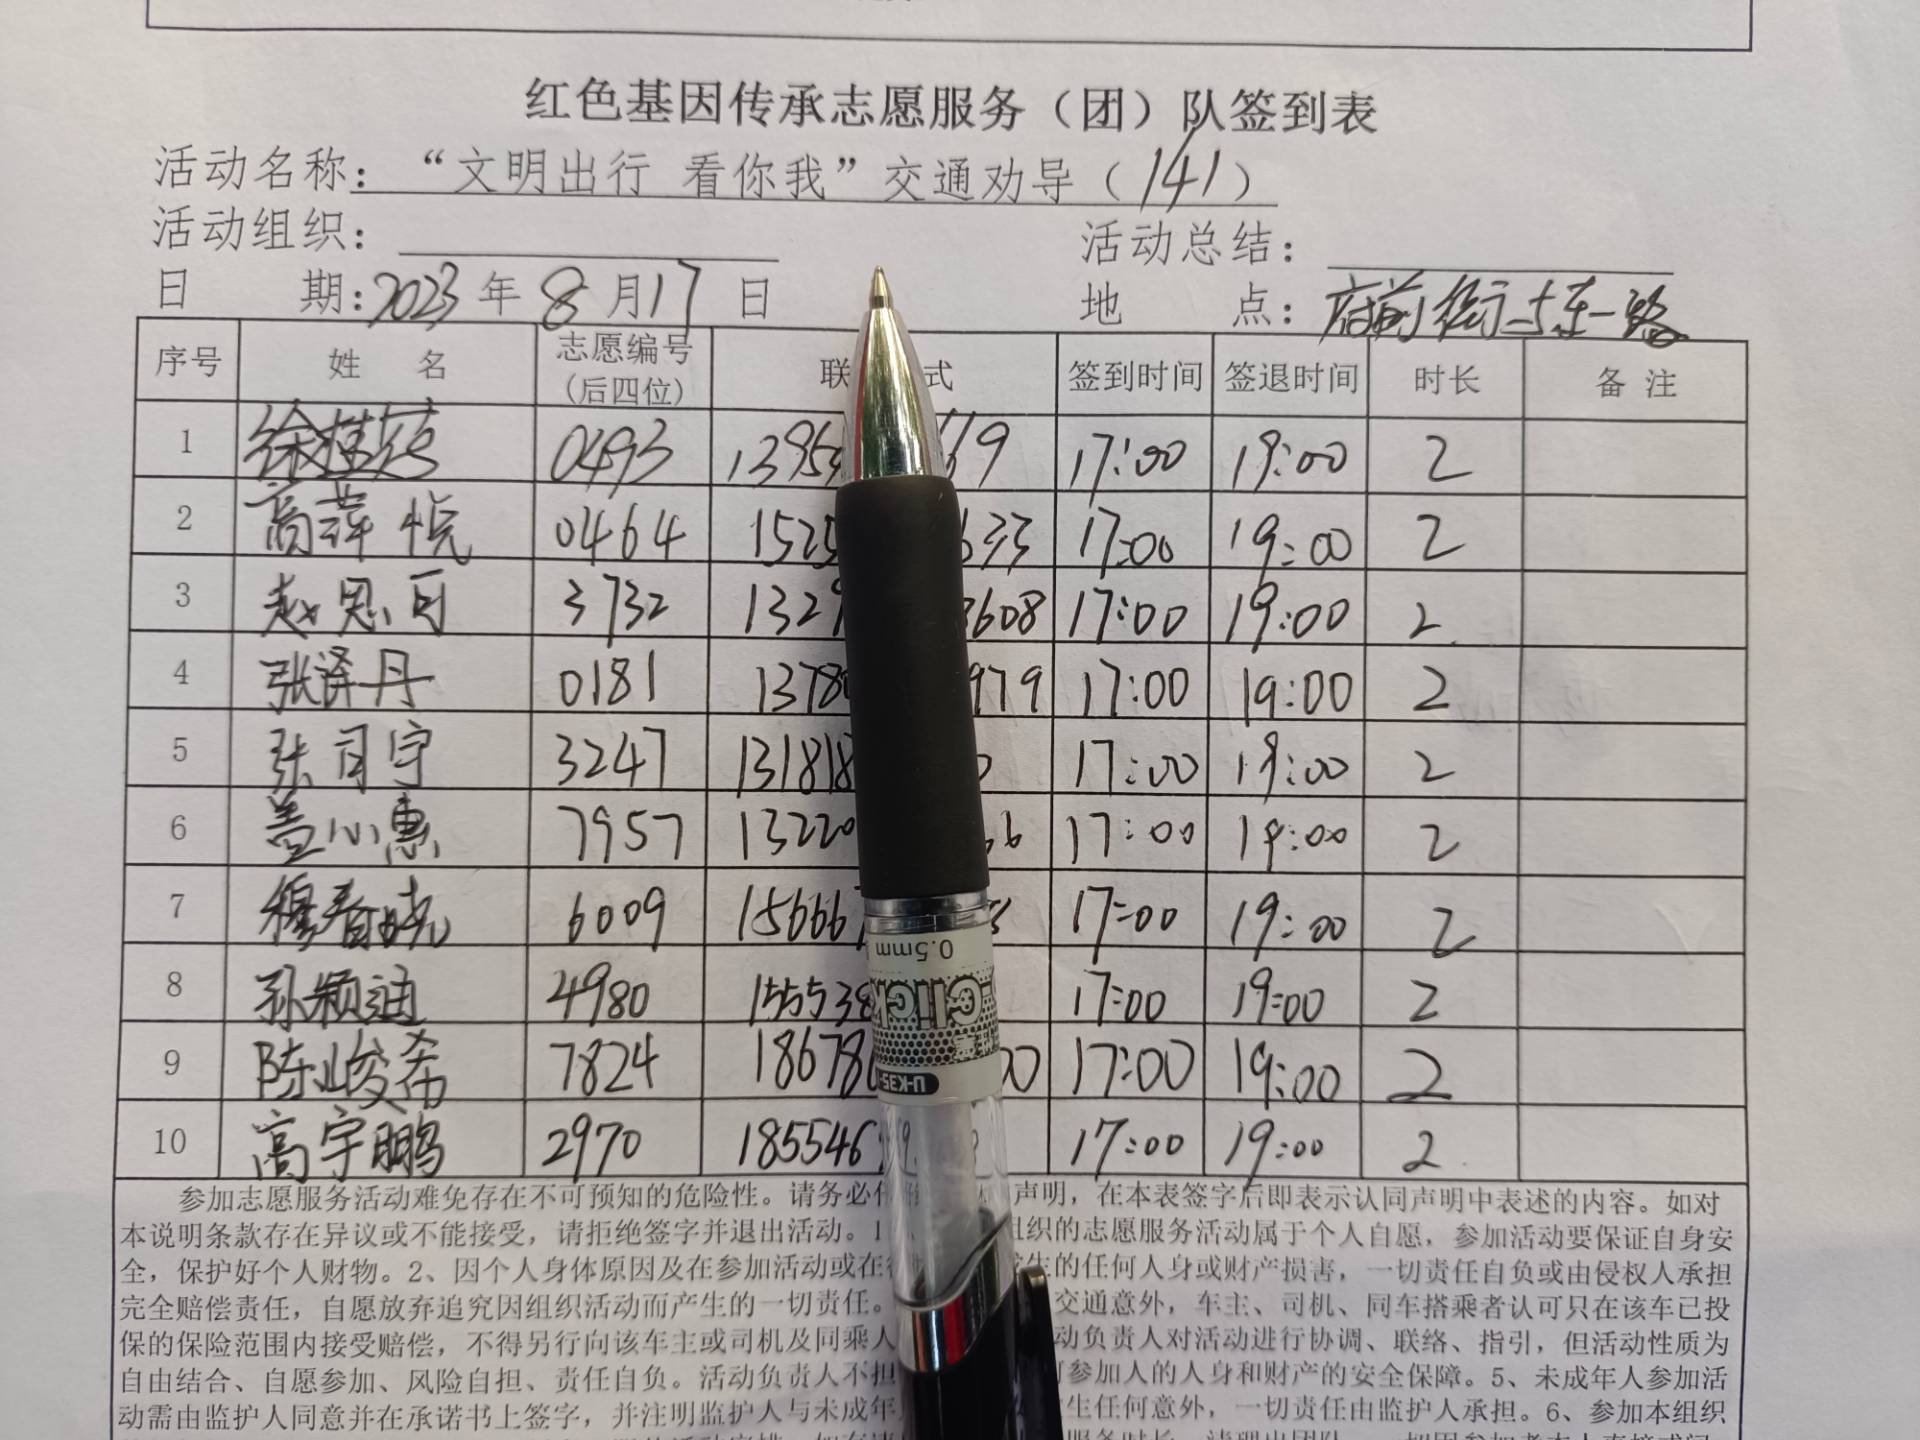 红色基因传承志愿服务（团）队签到表
活动名称：“文明出行 看你我”交通劝导（141）
活动组织： 活动总结：
日 期：2023年8月17日 地 点：府前街与东一路
序号 姓 名 志愿编号（后四位） 联 式 签到时间 签退时间 时长 备 注
1 徐桂 0493 1395 69 17:00 19:00 2
2 高萍悦 0464 1525 633 17:00 19:00 2
3 赵思可 3732 1329 3608 17:00 19:00 2
4 张泽丹 0181 1378 979 17:00 19:00 2
5 张司宇 3247 131818 17:00 19:00 2
6 盖小惠 7957 13220 17:00 19:00 2
7 穆春晓 6009 15666 17:00 19:00 2
8 孙颖迪 4980 155538 17:00 19:00 2
9 陈峻希 7824 18678 00 17:00 19:00 2
10 高宇鹏 2970 185546 17:00 19:00 2
0.5mm
Click
U-K35
参加志愿服务活动难免存在不可预知的危险性。请务必 声明，在本表签字后即表示认同声明中表述的内容。如对
本说明条款存在异议或不能接受，请拒绝签字并退出活动。1 组织的志愿服务活动属于个人自愿，参加活动要保证自身安
全，保护好个人财物。2、因个人身体原因及在参加活动或在 生的任何人身或财产损害，一切责任自负或由侵权人承担
完全赔偿责任，自愿放弃追究因组织活动而产生的一切责任。 交通意外，车主、司机、同车搭乘者认可只在该车已投
保的保险范围内接受赔偿，不得另行向该车主或司机及同乘人 动负责人对活动进行协调、联络、指引，但活动性质为
自由结合、自愿参加、风险自担、责任自负。活动负责人不担 参加人的人身和财产的安全保障。5、未成年人参加活
动需由监护人同意并在承诺书上签字，并注明监护人与未成年 生任何意外，一切责任由监护人承担。6、参加本组织